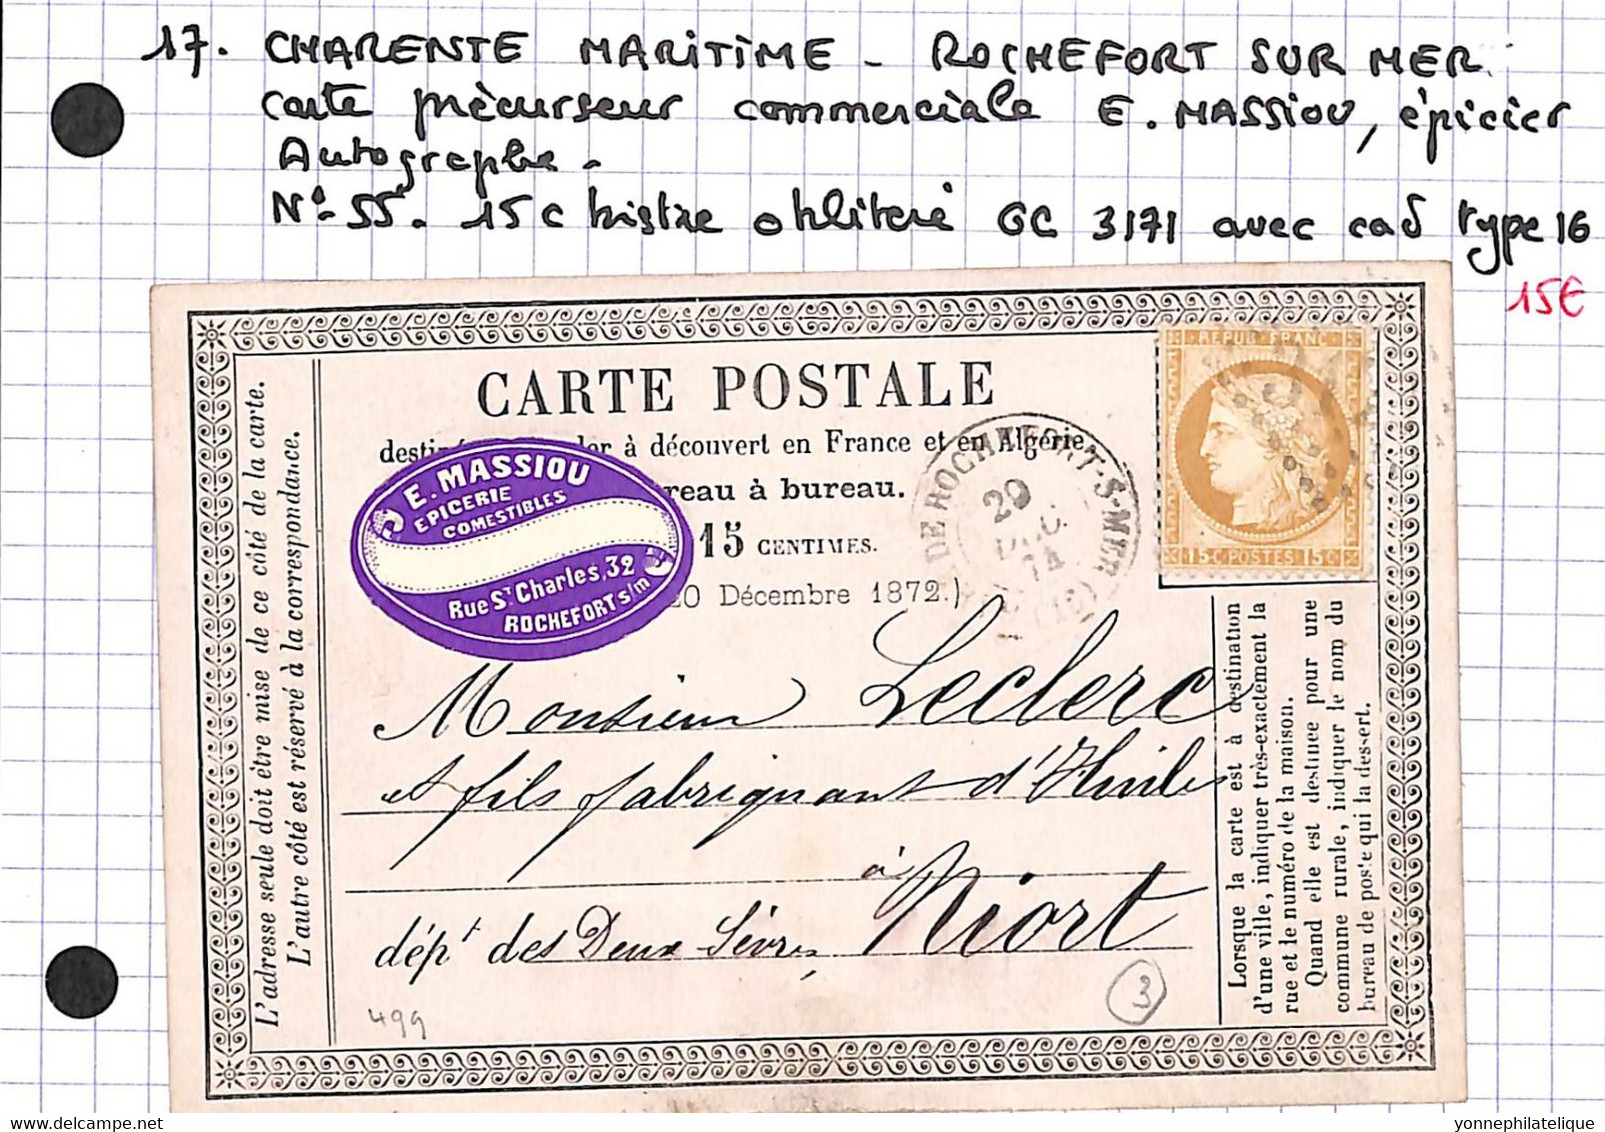 17. CHARENTE MARITIME - ROCHEFORT SUR MER
Carte précurseur commerciale E. MASSIOU, épicier
Autographe -
N° 55. 15 c bistre oblitéré GC 3171 avec cad type 16
15€
CARTE POSTALE
à découvert en France et en Algérie,
reau à bureau.
15 CENTIMES.
20 Décembre 1872.)
E. MASSIOU
EPICERIE
COMESTIBLES
Rue St Charles, 32
ROCHEFORT s/m
DE ROCHEFORT-S-MER
29
74
REPUB. FRANC.
15 C. POSTES 15 C.
Monsieur Leclerc
et fils fabriquant d'Huiles
à Niort
dépt des Deux Sèvres
499
3
L'adresse seule doit être mise de ce côté de la carte.
L'autre côté est réservé à la correspondance.
Lorsque la carte est à destination
d'une ville, indiquer très-exactement la
rue et le numéro de la maison.
Quand elle est destinée pour une
commune rurale, indiquer le nom du
bureau de poste qui la dessert.
delcampe.net
yonnephilatelie